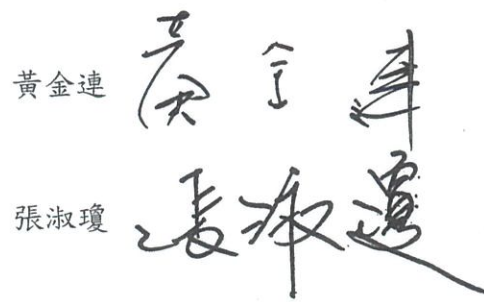 黃金連 黃金連
張淑瓊 張淑瓊